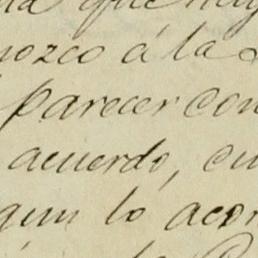 que
nozco á la
parecer con
acuerdo, cu
gun lo acor